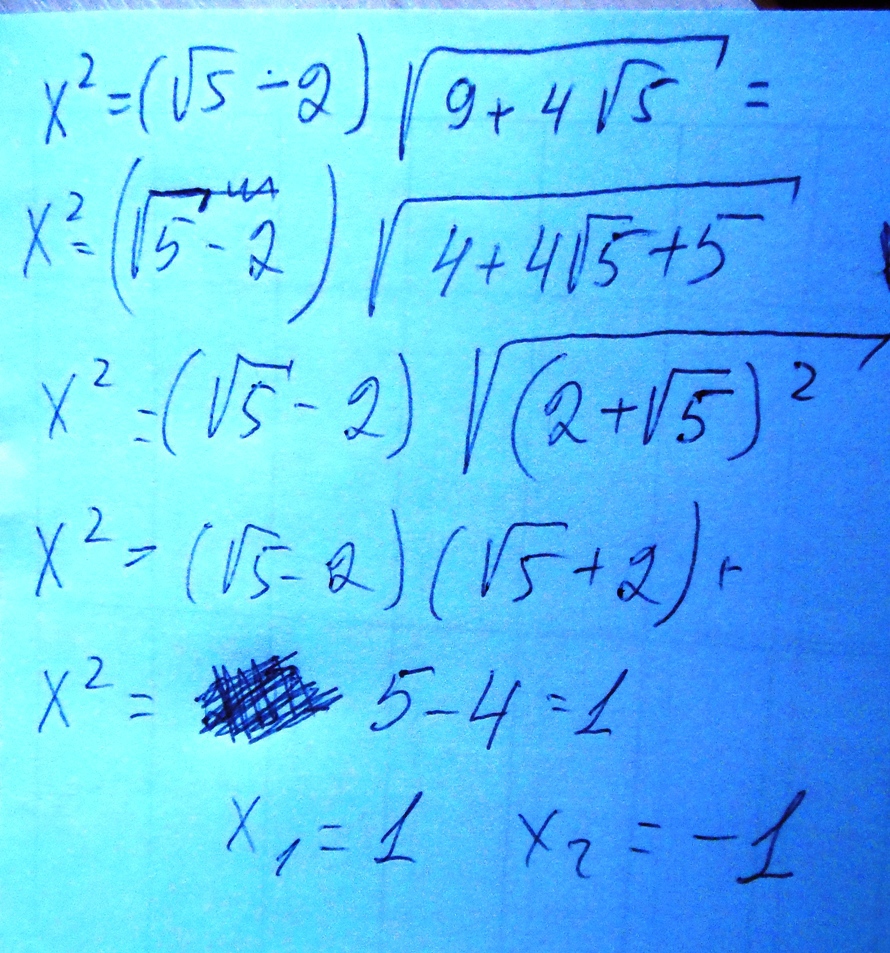 x² = (√5 - 2) √(9 + 4√5) =
x² = (√5 - 2) √(4 + 4√5 + 5)
x² = (√5 - 2) √((2 + √5)²)
x² = (√5 - 2)(√5 + 2)
x² = 5 - 4 = 1
x₁ = 1 x₂ = -1